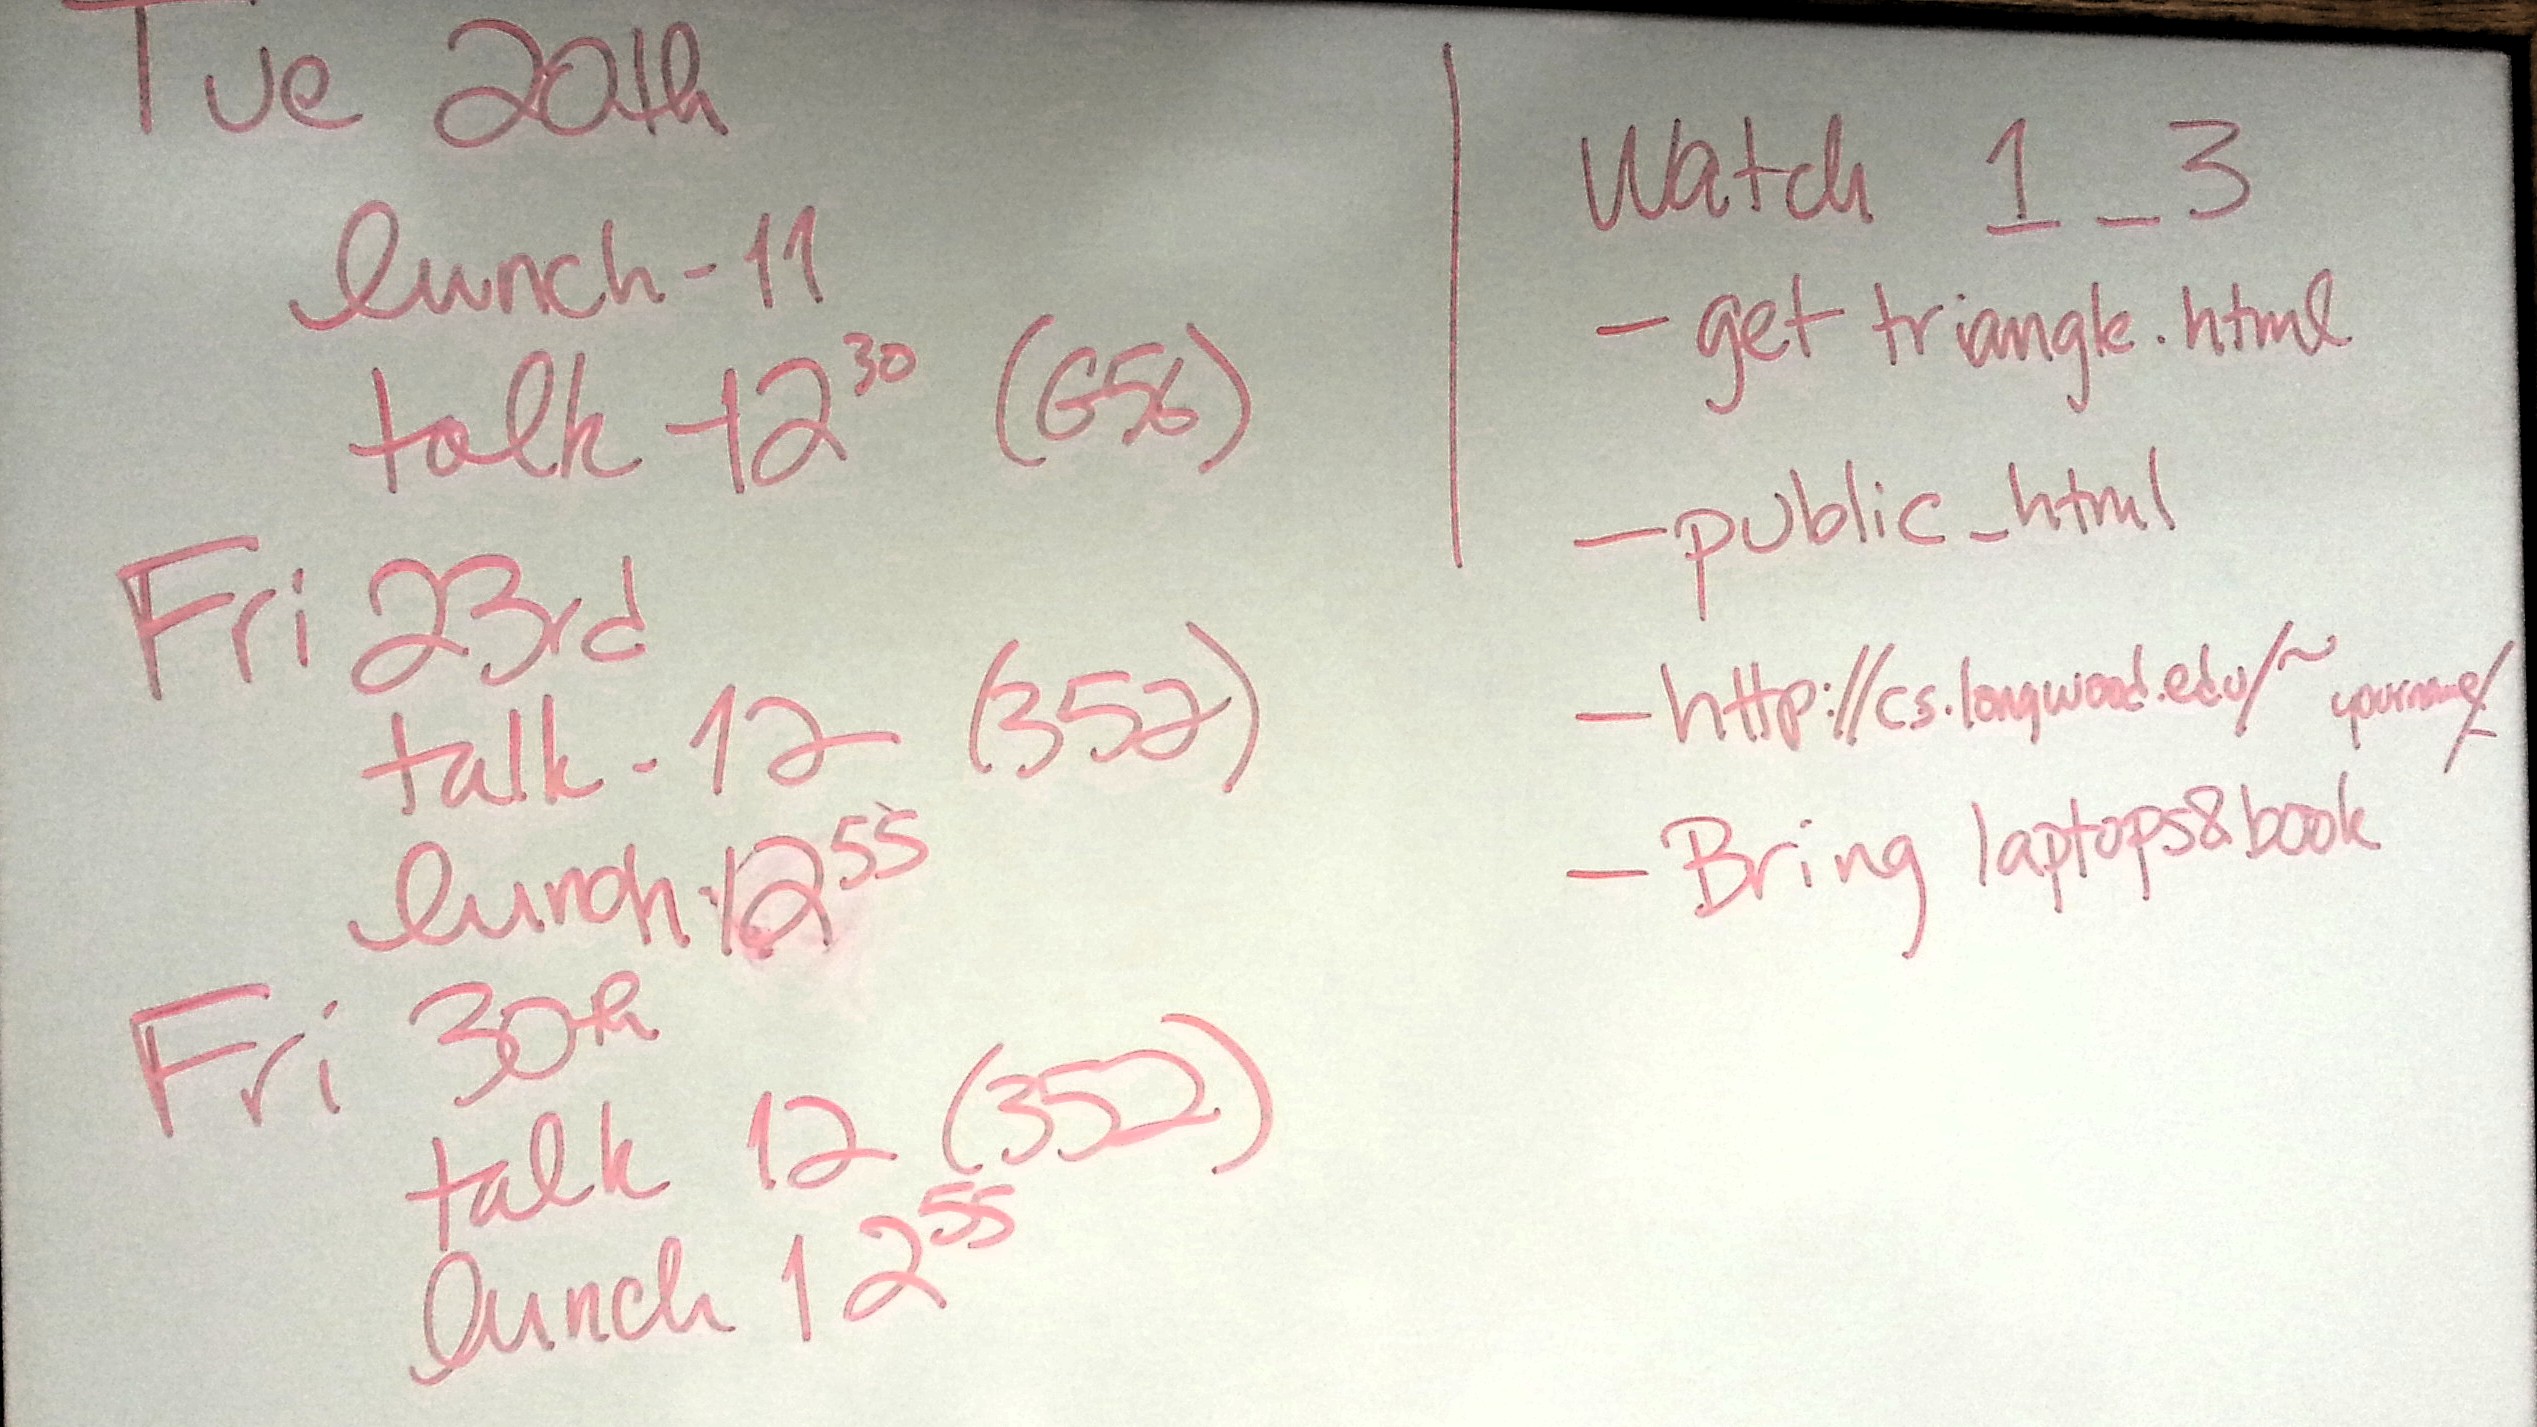 Tue 20th
lunch - 11
talk - 12 30 (G56)
Fri 23rd
talk - 12 (352)
lunch - 12 55
Fri 30th
talk 12 (352)
lunch 12 55
Watch 1_3
- get triangle.html
- public_html
- http://cs.longwood.edu/~yourname/
- Bring laptops & book